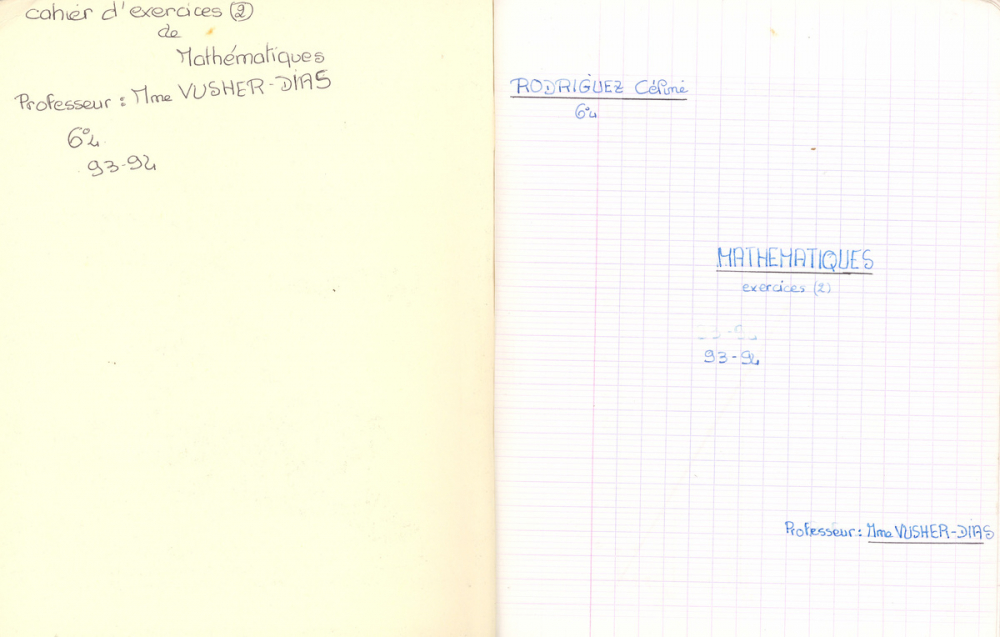 cahier d'exercices (2)
de
Mathématiques
Professeur : Mme VUSHER-DIAS
6°4
93-94
RODRIGUEZ Céline
6°4
MATHEMATIQUES
exercices (2)
93-94
Professeur : Mme VUSHER-DIAS